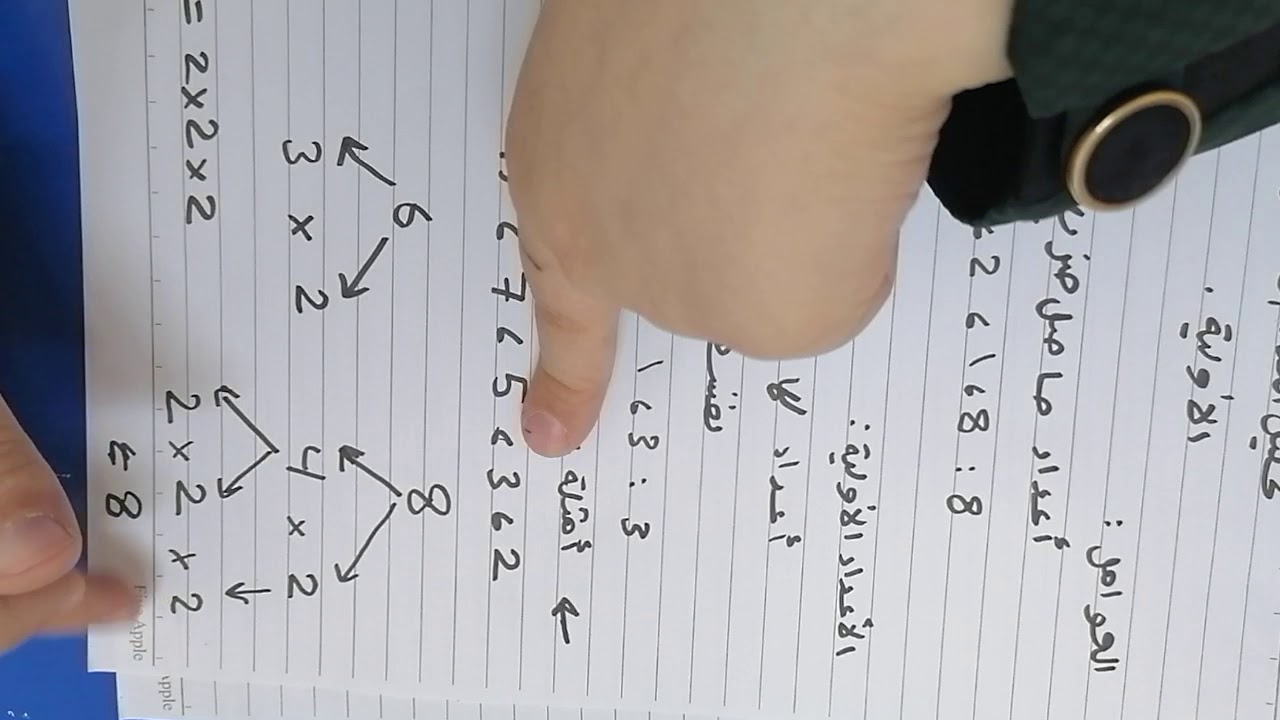 الأولية .
العوامل :
أعداد حاصل ضرب
8 : 8 ، 1 ، 2
الأعداد الأولية :
أعداد لا
3 : 3 ، 1
← أمثلة :
2 ، 3 ، 5 ، 7 ،
6 8
3 × 2 4 × 2
= 2 × 2 × 2 2 × 2 × 2
← 8
Apple
Apple